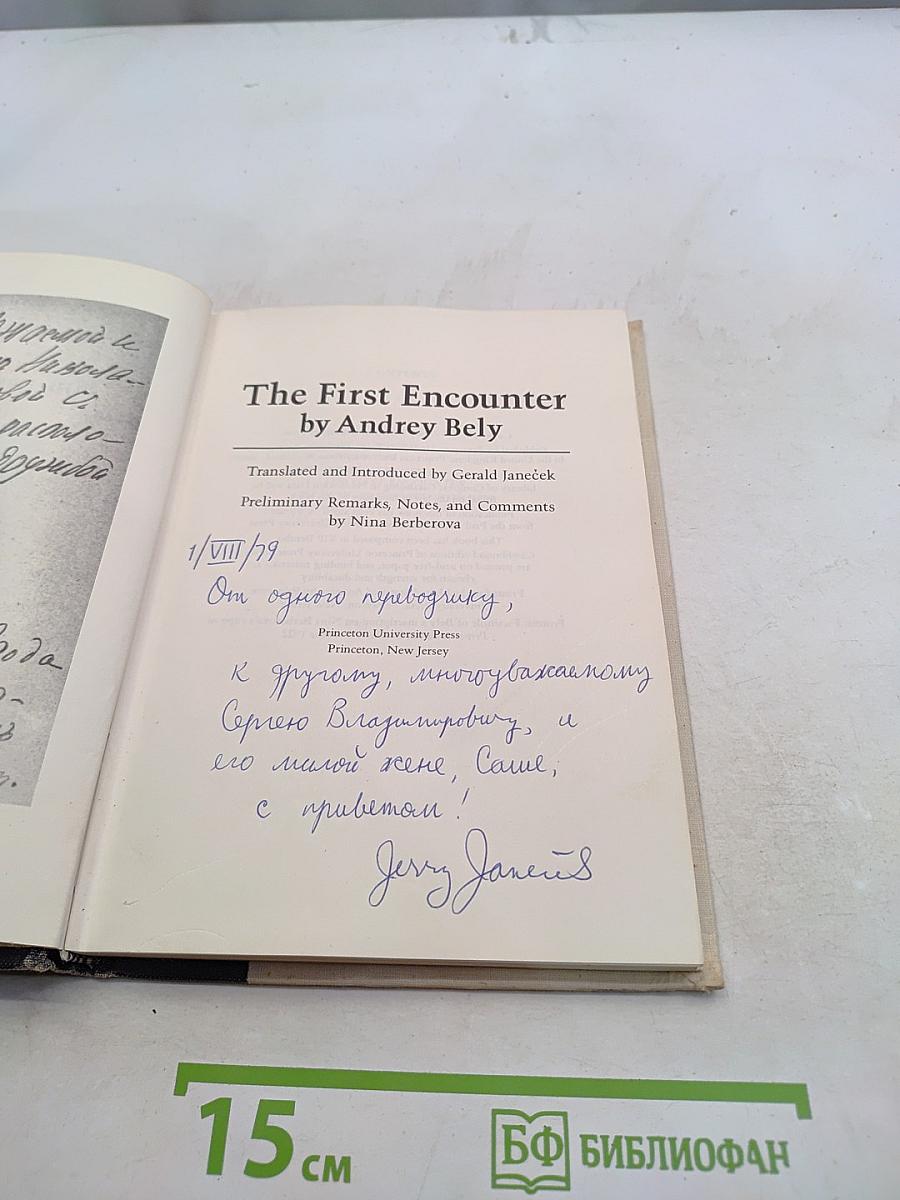 жаемой и
Никола-
вой С.
располо-
дружбой
года
The First Encounter
by Andrey Bely
Translated and Introduced by Gerald Janeček
Preliminary Remarks, Notes, and Comments
by Nina Berberova
1/VIII/79
От одного переводчику,
Princeton University Press
Princeton, New Jersey
к другому, многоуважаемому
Сергею Владимировичу, и
его милой жене, Саше,
с приветом!
Jerry Janeček
15 см
БФ БИБЛИОФАН